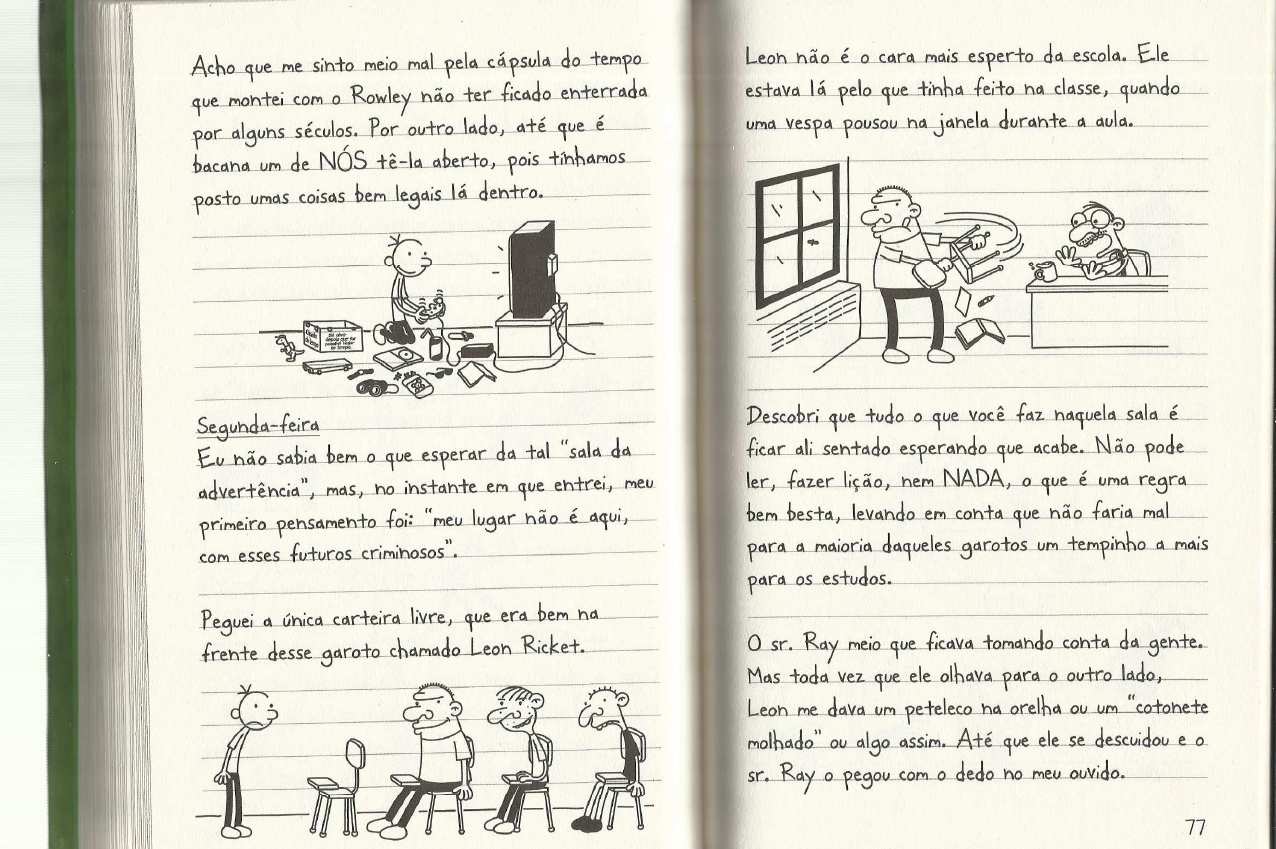 Acho que me sinto meio mal pela cápsula do tempo
que montei com o Rowley não ter ficado enterrada
por alguns séculos. Por outro lado, até que é
bacana um de NÓS tê-la aberto, pois tínhamos
posto umas coisas bem legais lá dentro.
Segunda-feira
Eu não sabia bem o que esperar da tal "sala da
advertência", mas, no instante em que entrei, meu
primeiro pensamento foi: "meu lugar não é aqui,
com esses futuros criminosos".
Peguei a única carteira livre, que era bem na
frente desse garoto chamado Leon Ricket.
Leon não é o cara mais esperto da escola. Ele
estava lá pelo que tinha feito na classe, quando
uma vespa pousou na janela durante a aula.
Descobri que tudo o que você faz naquela sala é
ficar ali sentado esperando que acabe. Não pode
ler, fazer lição, nem NADA, o que é uma regra
bem besta, levando em conta que não faria mal
para a maioria daqueles garotos um tempinho a mais
para os estudos.
O sr. Ray meio que ficava tomando conta da gente.
Mas toda vez que ele olhava para o outro lado,
Leon me dava um peteleco na orelha ou um "cotonete
molhado" ou algo assim. Até que ele se descuidou e o
sr. Ray o pegou com o dedo no meu ouvido.
77